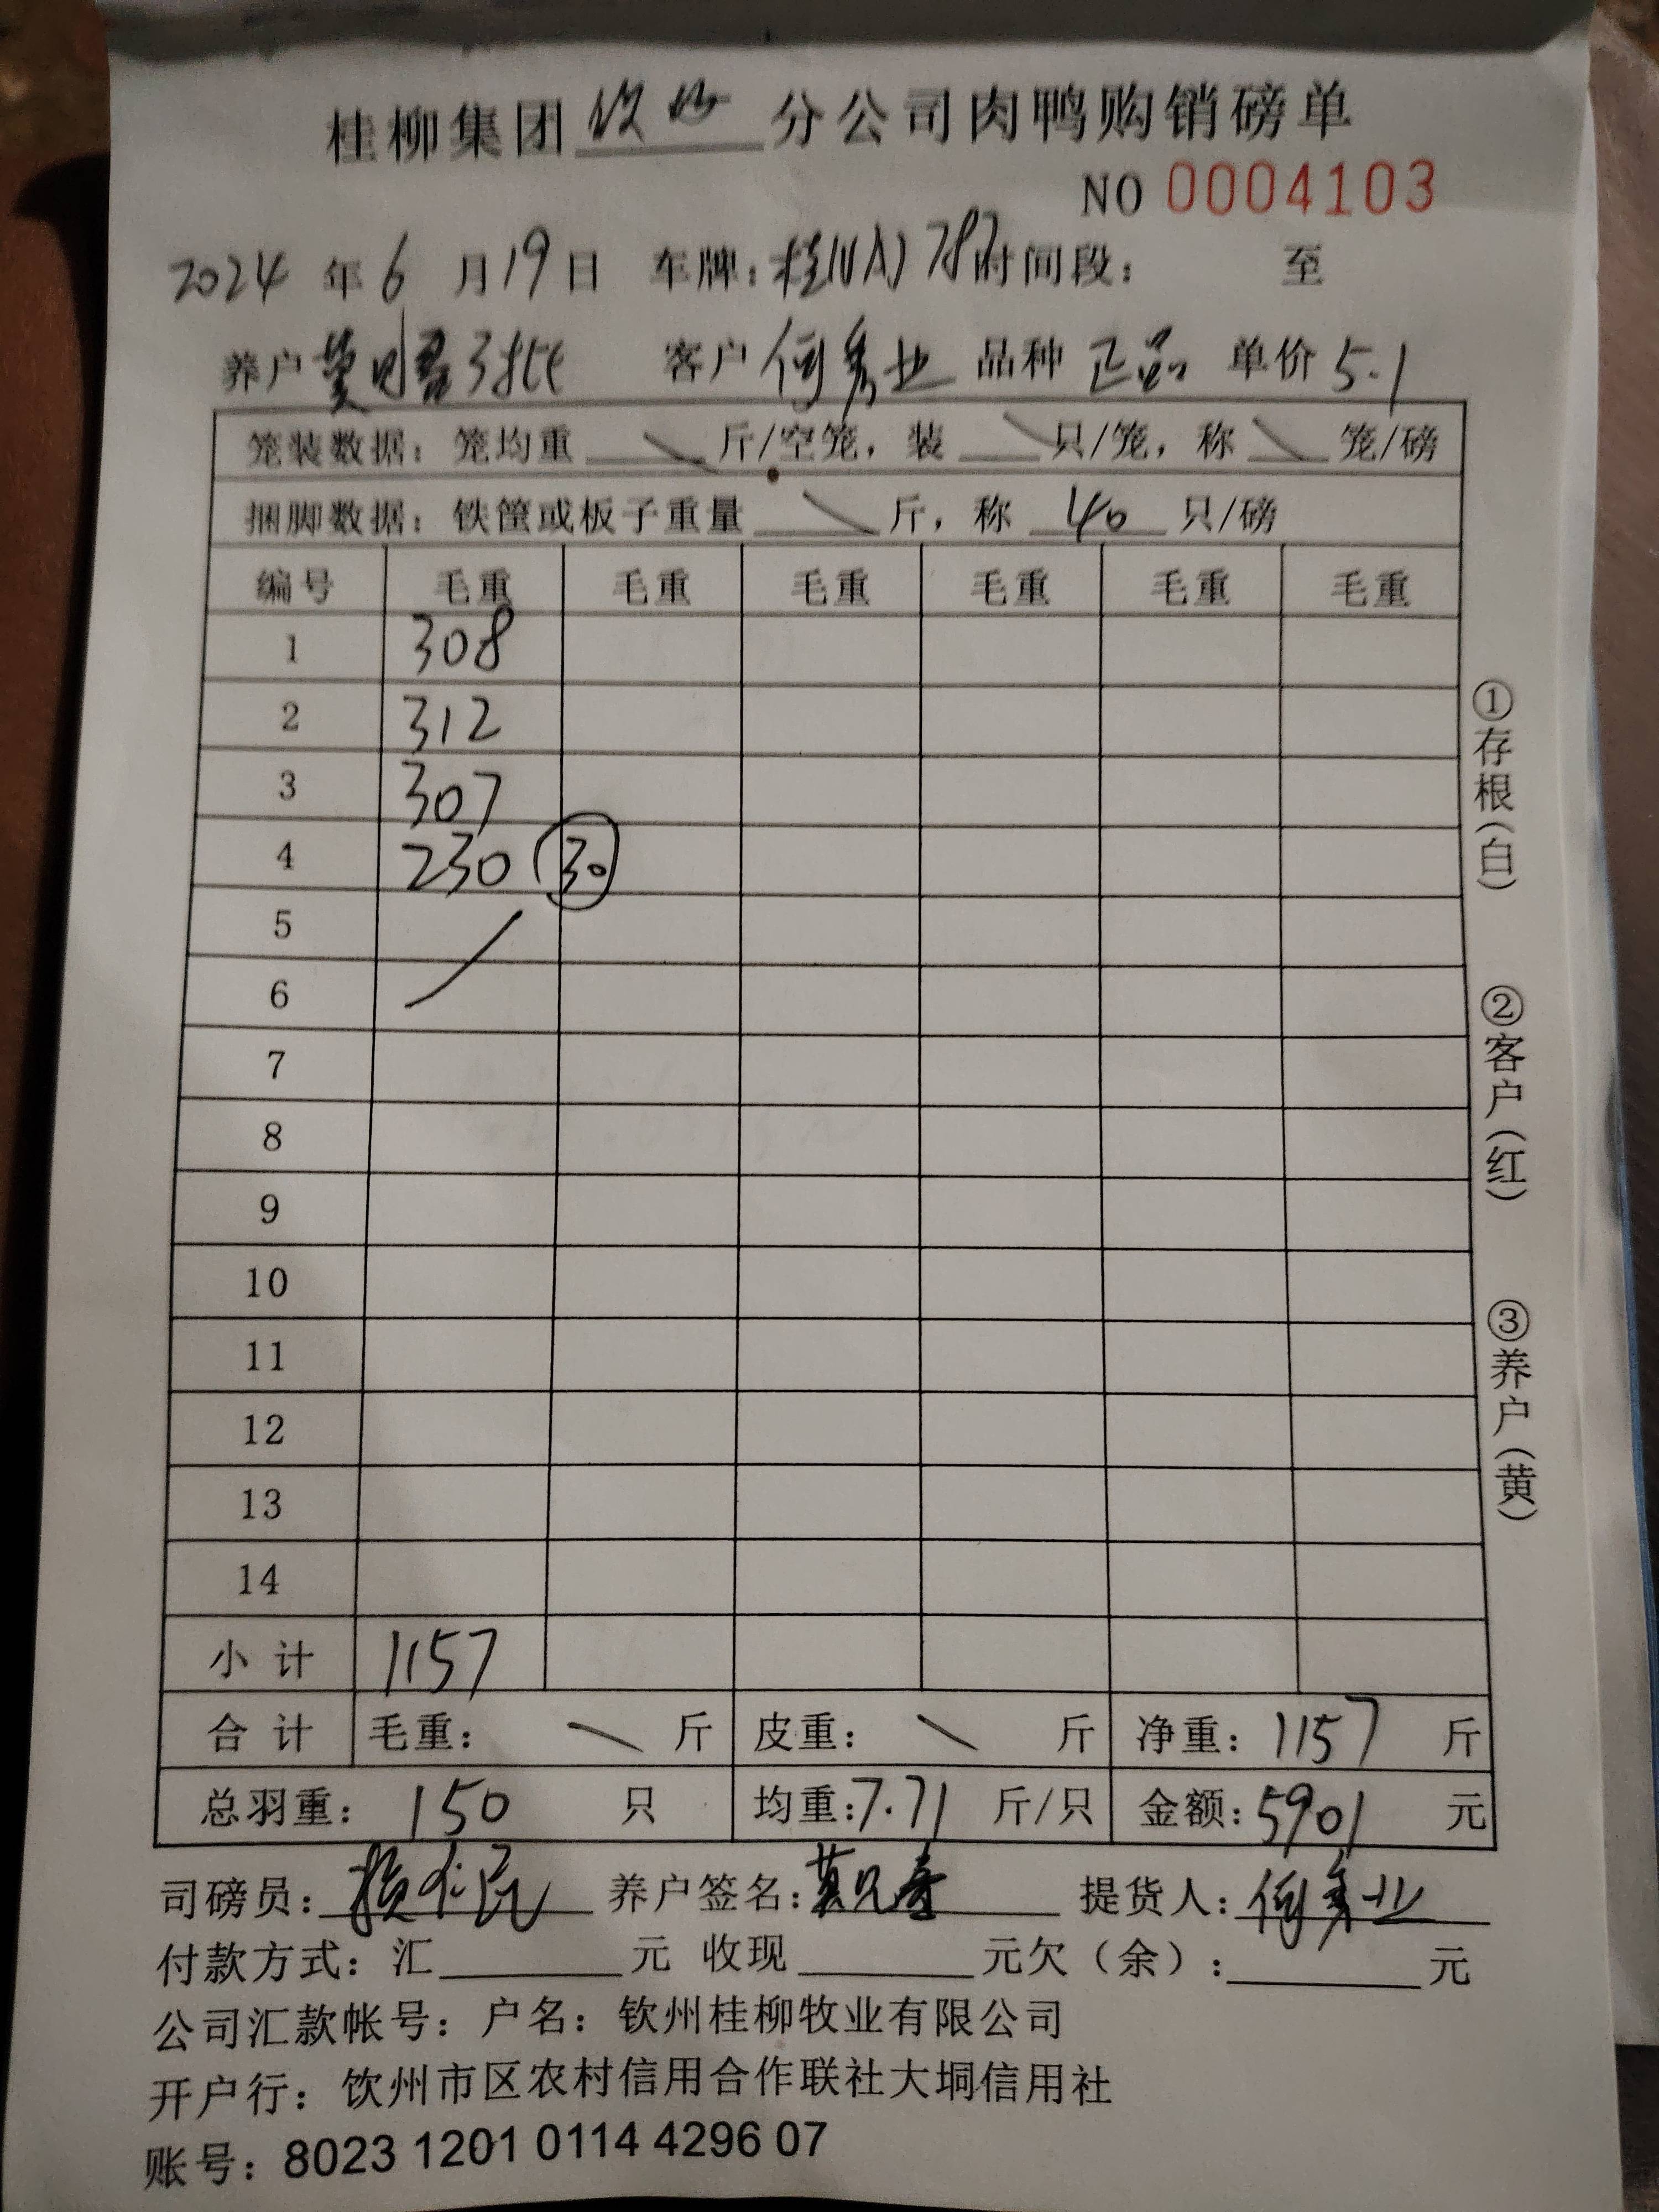 桂柳集团钦州分公司肉鸭购销磅单
NO 0004103
2024年6月19日 车牌:桂 时间段: 至
养户 3批 客户 何秀业 品种 正品 单价 5.1
笼装数据: 笼均重 \ 斤/空笼, 装 \ 只/笼, 称 \ 笼/磅
捆脚数据: 铁筐或板子重量 \ 斤, 称 40 只/磅
编号 毛重 毛重 毛重 毛重 毛重 毛重
1 308
2 312
3 307
4 230 30
5
6
7
8
9
10
11
12
13
14
小计 1157
合计 毛重: \ 斤 皮重: \ 斤 净重: 1157 斤
总羽重: 150 只 均重: 7.71 斤/只 金额: 5901 元
司磅员: 养户签名: 提货人: 何秀业
付款方式: 汇 元 收现 元欠(余): 元
公司汇款帐号: 户名: 钦州桂柳牧业有限公司
开户行: 钦州市区农村信用合作联社大垌信用社
账号: 8023 1201 0114 4296 07
①存根(白)
②客户(红)
③养户(黄)